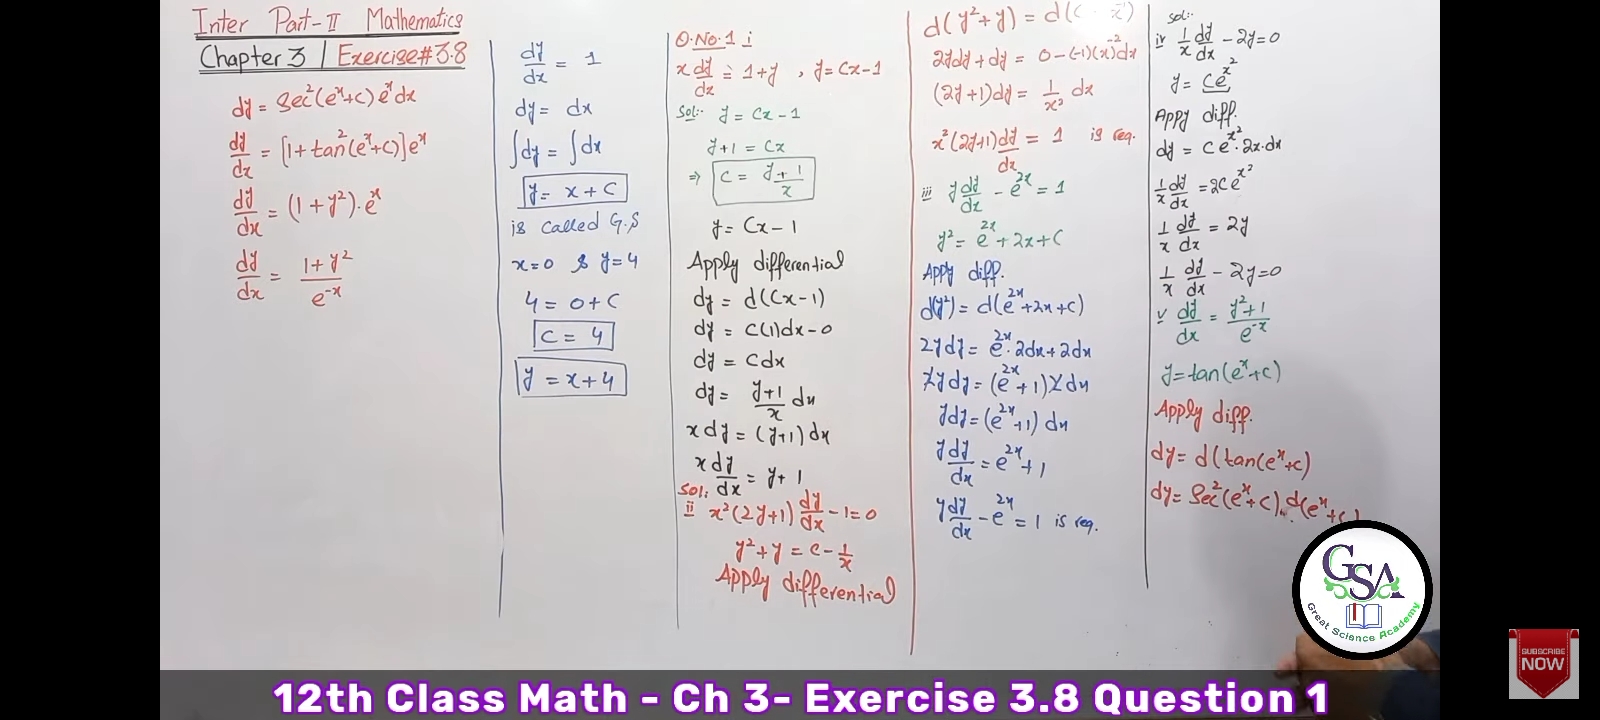 Inter Part-II Mathematics
Chapter 3 | Exercise#3.8
dy = Sec²(eˣ+c) eˣ dx
dy/dx = [1+tan²(eˣ+c)]eˣ
dy/dx = (1+y²).eˣ
dy/dx = 1+y²/e⁻ˣ
dy/dx = 1
dy = dx
∫dy = ∫dx
y = x + C
is called G.S
x=0 & y=4
4 = 0 + C
C = 4
y = x+4
Q.No.1 i
x dy/dx = 1+y , y = Cx-1
Sol:- y = Cx-1
y+1 = Cx
⇒ C = y+1/x
y = Cx-1
Apply differential
dy = d(Cx-1)
dy = C(1)dx-0
dy = Cdx
dy = y+1/x dx
x dy = (y+1)dx
x dy/dx = y+1
Sol:
ii x²(2y+1) dy/dx -1=0
y²+y = c-1/x
Apply differential
d(y²+y) = d(c - x⁻¹)
2ydy+dy = 0-(-1)(x)⁻²dx
(2y+1)dy = 1/x² dx
x²(2y+1)dy/dx = 1 is req.
iii y dy/dx - e²ˣ = 1
y² = e²ˣ+2x+C
Appy diff.
d(y²) = d(e²ˣ+2x+c)
2ydy = e²ˣ.2dx+2dx
2ydy = (e²ˣ+1)2dx
ydy = (e²ˣ+1)dx
y dy/dx = e²ˣ+1
y dy/dx - e²ˣ = 1 is req.
Sol:-
iv 1/x dy/dx - 2y=0
y = Ce^x²
Appy diff.
dy = Ce^x².2x.dx
1/x dy/dx = 2Ce^x²
1/x dy/dx = 2y
1/x dy/dx - 2y=0
v dy/dx = y²+1/e⁻ˣ
y=tan(eˣ+c)
Apply diff.
dy = d(tan(eˣ+c)
dy = Sec²(eˣ+c).d(eˣ+c)
GSA
Great Science Academy
SUBSCRIBE
NOW
12th Class Math - Ch 3- Exercise 3.8 Question 1